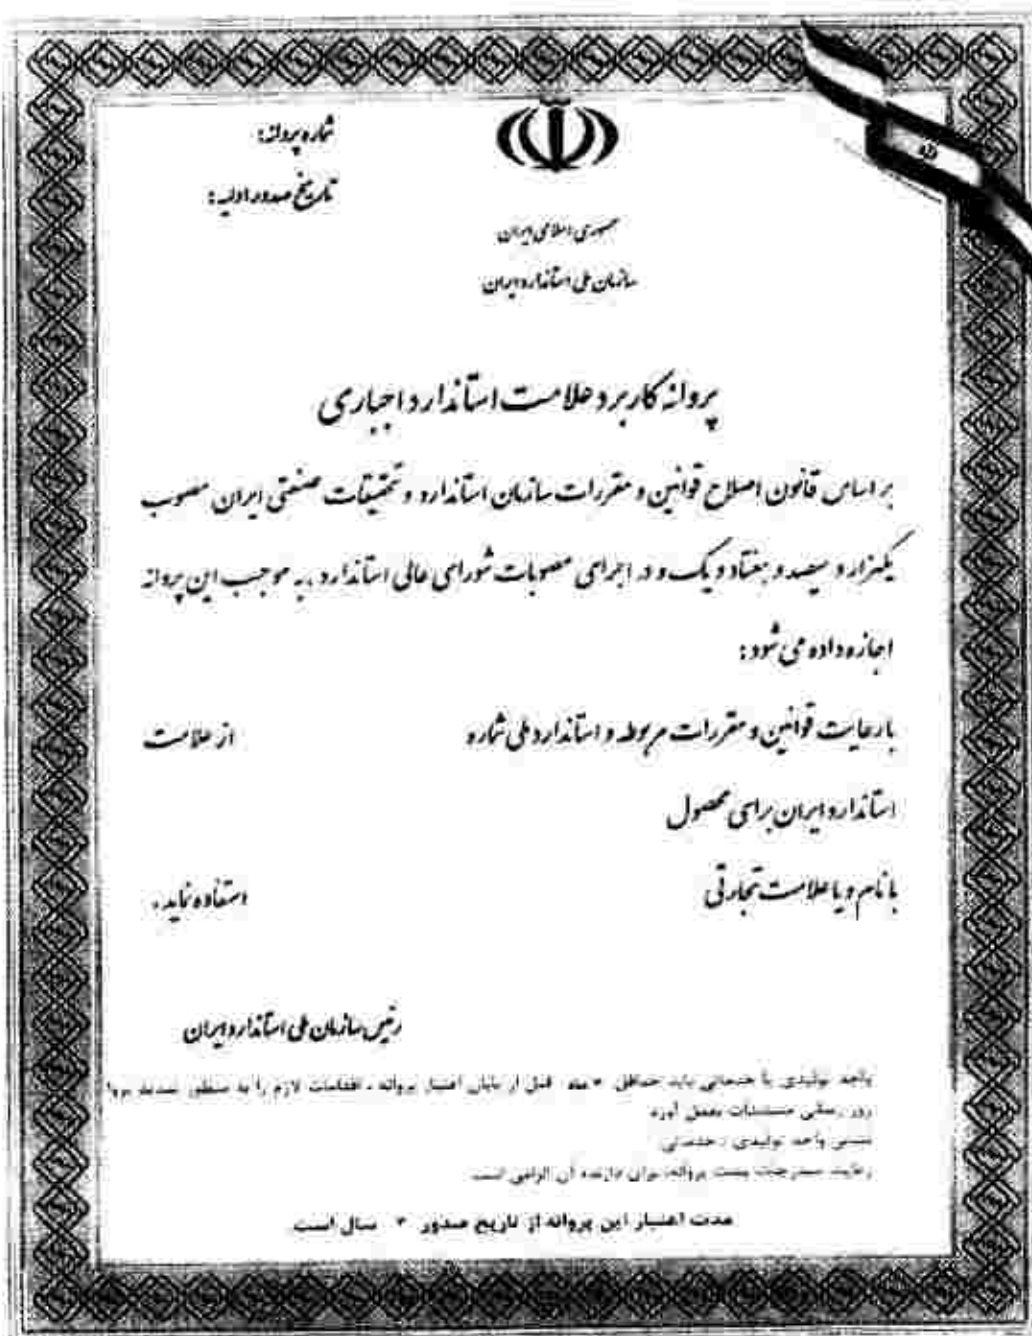 شماره پروانه:
تاریخ صدور اولیه:
جمهوری اسلامی ایران
سازمان ملی استاندارد ایران
پروانه کاربرد علامت استاندارد اجباری
بر اساس قانون اصلاح قوانین و مقررات سازمان استاندارد و تحقیقات صنعتی ایران مصوب
یکهزار و سیصد و هفتاد و یک و در اجرای مصوبات شورای عالی استاندارد، به موجب این پروانه
اجازه داده می شود:
با رعایت قوانین و مقررات مربوطه و استاندارد ملی شماره از علامت
استاندارد ایران برای محصول
با نام و یا علامت تجارتی استفاده نماید.
رئیس سازمان ملی استاندارد ایران
واحد تولیدی یا خدماتی باید حداقل ماه قبل از پایان اعتبار پروانه، اقدامات لازم را به منظور تمدید
روز رسانی مستندات بعمل آورد
واحد تولیدی / خدماتی
رعایت مندرجات پشت پروانه، برای دارنده آن الزامی است
مدت اعتبار این پروانه از تاریخ صدور سال است